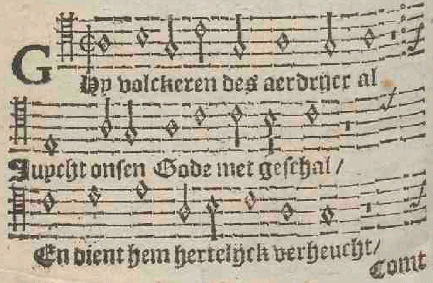 GHy volckeren des aerdrijcx al
Juycht onsen Gode met geschal/
En dient hem hertelijck verheucht/
Comt